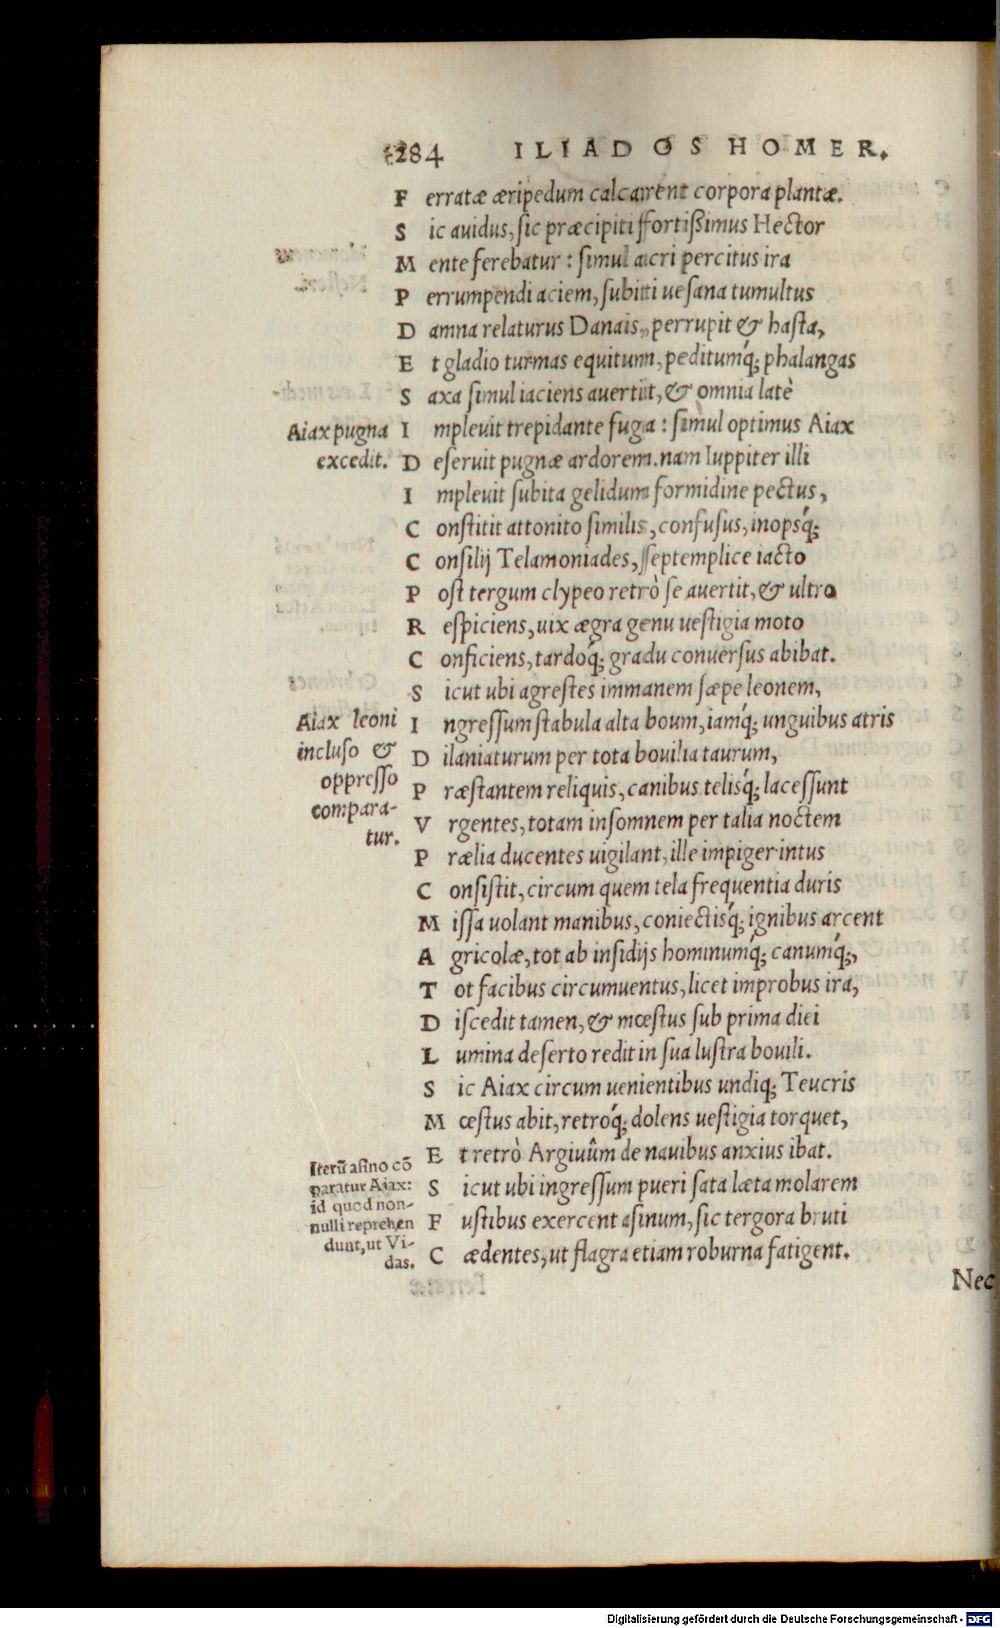 284 ILIADOS HOMER.
Ferratæ æripedum calcarent corpora plantæ.
Sic auidus, sic præcipiti ffortißimus Hector
Mente ferebatur : simul acri percitus ira
Perrumpendi aciem, subiiti uesana tumultus
Damna relaturus Danais, perrupit & hasta,
Et gladio turmas equitum, peditumq́; phalangas
Saxa simul iaciens auertit, & omnia latè
Aiax pugna
excedit.
Impleuit trepidante fuga : simul optimus Aiax
Deseruit pugnæ ardorem. nam Iuppiter illi
Impleuit subita gelidum formidine pectus,
Constitit attonito similis, confusus, inopsq́;
Consilij Telamoniades, sseptemplice iacto
Post tergum clypeo retrò se auertit, & ultro
Respiciens, uix ægra genu uestigia moto
Conficiens, tardoq́; gradu conuersus abibat.
Sicut ubi agrestes immanem sæpe leonem,
Aiax leoni
incluso &
oppresso
compara-
tur.
Ingressum stabula alta boum, iamq́; unguibus atris
Dilaniaturum per tota bouilia taurum,
Præstantem reliquis, canibus telisq́; lacessunt
Vrgentes, totam insomnem per talia noctem
Prælia ducentes uigilant, ille impiger intus
Consistit, circum quem tela frequentia duris
Missa uolant manibus, coniectisq́; ignibus arcent
Agricolæ, tot ab insidijs hominumq́; canumq́;,
Tot facibus circumuentus, licet improbus ira,
Discedit tamen, & mœstus sub prima diei
Lumina deserto redit in sua lustra bouili.
Sic Aiax circum uenientibus undiq; Teucris
Mœstus abit, retroq́; dolens uestigia torquet,
Et retrò Argiuûm de nauibus anxius ibat.
Iterũ asino cō
paratur Aiax:
id quod non-
nulli reprehen
dunt, ut Vi-
das.
Sicut ubi ingressum pueri sata læta molarem
Fustibus exercent asinum, sic tergora bruti
Cædentes, ut flagra etiam roburna fatigent.
Nec
Digitalisierung gefördert durch die Deutsche Forschungsgemeinschaft - DFG